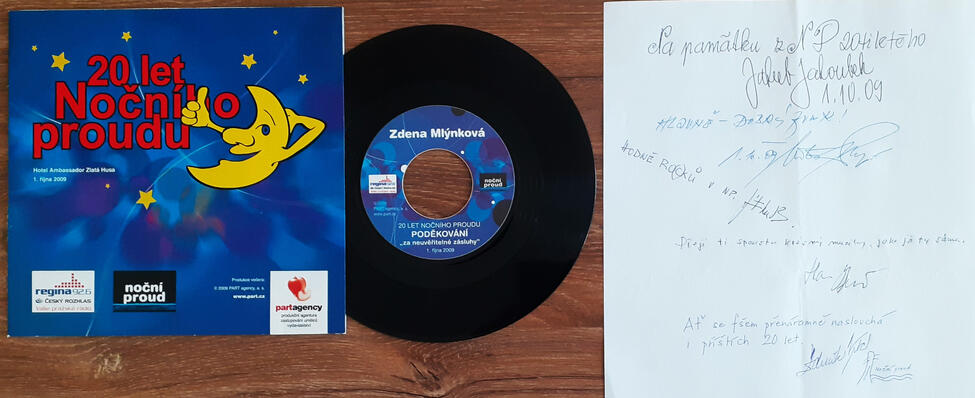 20 let
Nočního
proudu
Hotel Ambassador Zlatá Husa
1. října 2009
regina 92.6
ČESKÝ ROZHLAS
Vaše pražské rádio
noční
proud
Produkce večera:
© 2009 PART agency, a. s.
www.part.cz
partagency
produkční agentura
zastupování umělců
vydavatelství
Zdena Mlýnková
regina 92.6
noční
proud
PART agency, a.s.
www.part.cz
20 LET NOČNÍHO PROUDU
PODĚKOVÁNÍ
„za neuvěřitelné zásluhy“
1. října 2009
Na památku z NP 20tiletého
Jakub
1.10.09
HLAVNĚ - DOBAS
1.10.09
HODNĚ ROČKŮ
V NP.
Přeji ti spoustu krásný muziky, jako já ty sama.
Ať se všem přenáramně naslouchá
i příštích 20 let.
Noční proud